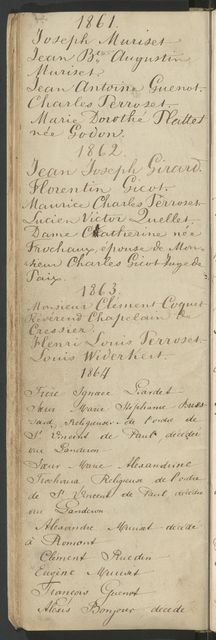 1861.
Joseph Muriset.
Jean Bte Augustin
Muriset.
Jean Antoine Guenot.
Charles Perroset.
Marie Dorothé
née Godon.
1862.
Jean Joseph Girard.
Florentin Gicot.
Maurice Charles Perroset.
Lucien Victor Quellet.
Dame Catherine née
Frochaux, épouse de Mon-
sieur Charles Gicot Juge de
Paix.
1863.
Monsieur Clément Coquet
Révérend Chapelain de
Cressier.
Henri Louis Perroset.
Louis Widerkert.
1864
Frère Ignace
Sœur Marie Stéphanie
Religieuse de l'ordre de
St Vincent de Paul décédée
au Landeron
Sœur Marie Alexandrine
Frochaux Religieuse de l'ordre
de St Vincent de Paul décédée
au Landeron
Alexandre Muriset décédé
à Romont
Clément Ruedin
Eugène Muriset
François Guenot
Aloïs Bonjour décédé